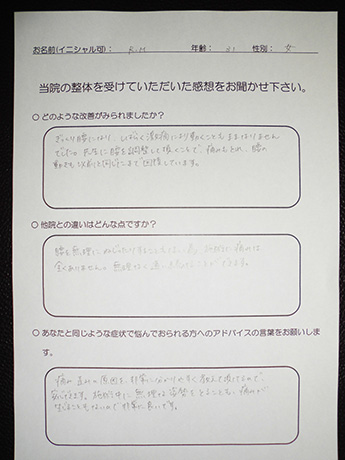 お名前(イニシャル可)： R.M 年齢： 41 性別： 女
当院の整体を受けていただいた感想をお聞かせ下さい。
○ どのような改善がみられましたか？
ぎっくり腰になり、しばらく激痛により動くこともままなりません
でした。先生に腰を調整して頂くことで、痛みもとれ、腰の
動きも以前と同じまで回復しています。
○ 他院との違いはどんな点ですか？
腰を無理に ることもない為、 に痛みは
全くありません。無理なく 通い ことができます。
○ あなたと同じような症状で悩んでおられる方へのアドバイスの言葉をお願いしま
す。
痛み の原因を、非常に分かりやすく教えて頂けるので、
安心できます。施術中に無理な姿勢をとることも、痛みが
生じることもないので非常に良いです。